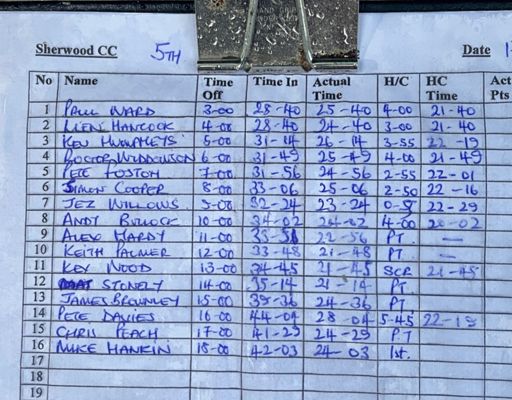 Sherwood CC 5TH Date
No Name Time Off Time In Actual Time H/C HC Time Act Pts
1 PAUL WARD 3-00 28-40 25-40 4-00 21-40
2 HANCOCK 4-00 28-40 24-40 3-00 21-40
3 KEN HUMPHREYS 5-00 31-14 26-14 3-55 22-19
4 6-00 31-49 25-49 4-00 21-49
5 PETE FOSTON 7-00 31-56 24-56 2-55 22-01
6 SIMON COOPER 8-00 33-06 25-06 2-50 22-16
7 JEZ WILLOWS 9-00 32-24 23-24 22-29
8 ANDY BULLOCK 10-00 34-02 24-02 4-00 20-02
9 ALEX HARDY 11-00 22-56 PT —
10 KEITH PALMER 12-00 33-48 21-48 PT —
11 KEV WOOD 13-00 34-45 21-45 SCR 21-45
12 STONELY 14-00 35-14 21-14 PT
13 JAMES BROWNLEY 15-00 39-36 24-36 PT
14 PETE DAVIES 16-00 44-04 28-04 5-45 22-19
15 CHRIS PEACH 17-00 41-29 24-29 PT
16 MIKE HANKIN 18-00 42-03 24-03 1st.
17
18
19